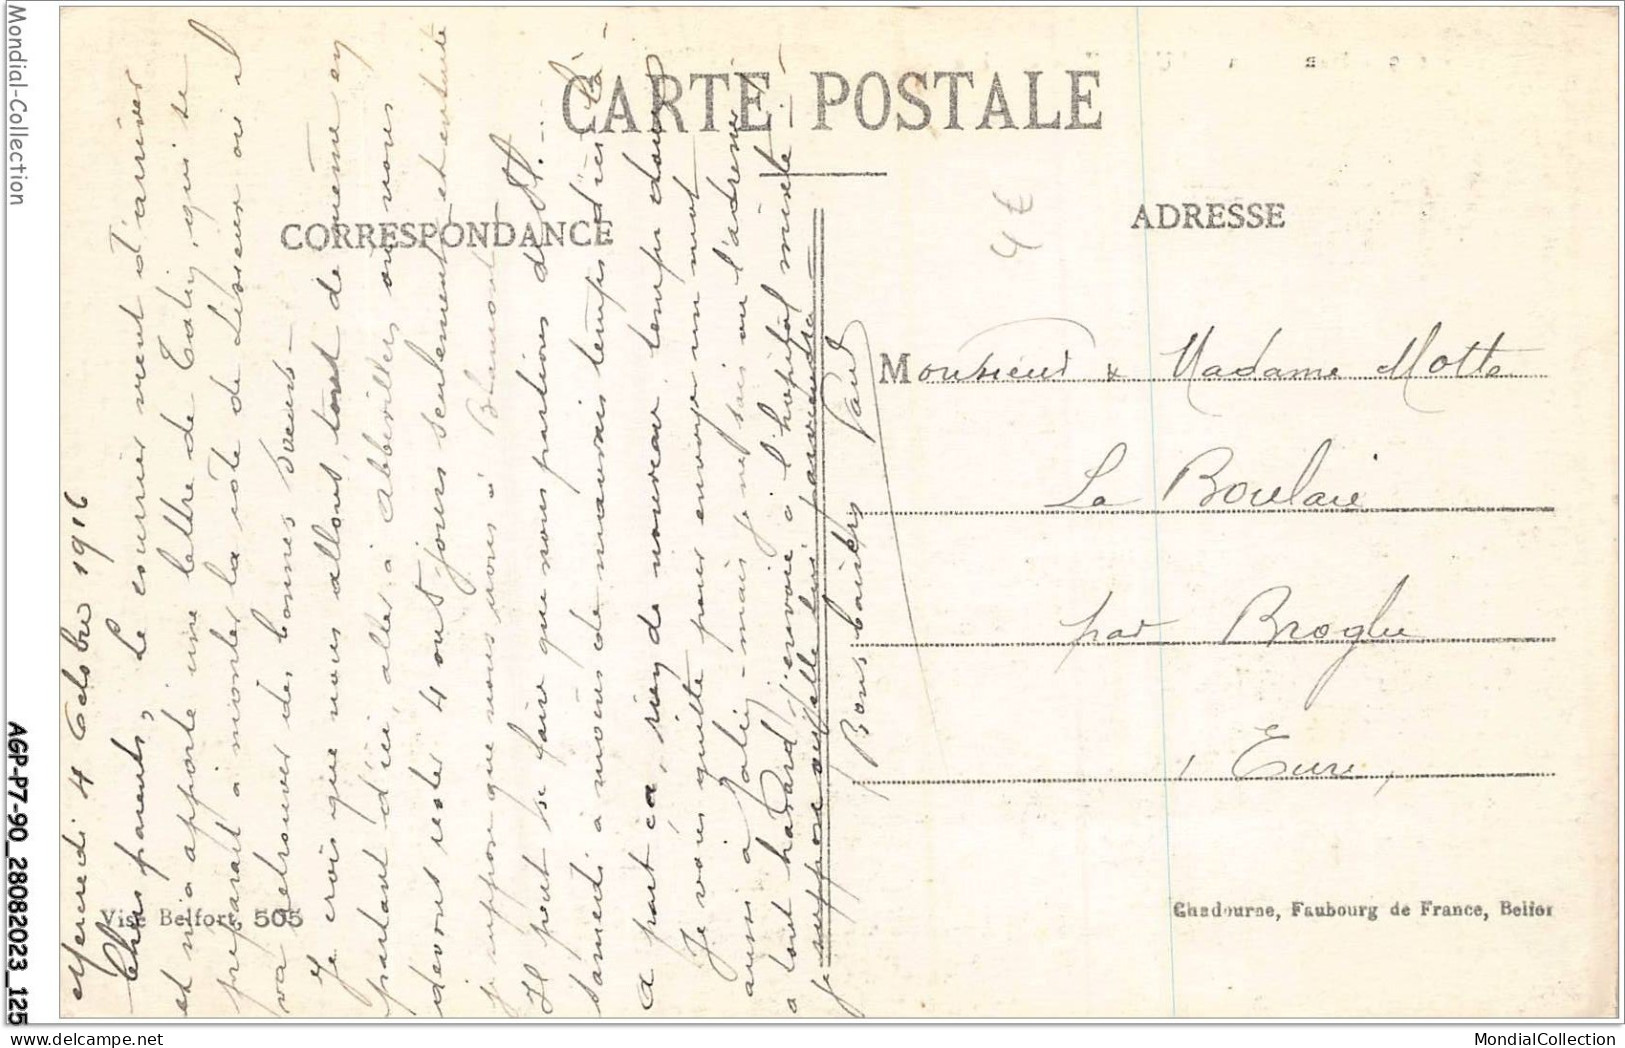 Mondial-Collection
AGP-P7-90_28082023_125
CARTE POSTALE
CORRESPONDANCE
ADRESSE
4 €
Mercredi 4 Octobre 1916
Chers parents, Le courrier vient d'arriver
et m'a apporté une lettre de qui se
préparait à monter la côte de Lisieux où il
va retrouver des bonnes sœurs –
Je crois que nous allons, tout de même en
partant d'ici, aller à Abbeviller où nous
devrons rester 4 ou 5 jours seulement et ensuite
je suppose que nous irons à Blamont
Il peut se faire que nous partions d'ici
samedi à moins de mauvais temps d'ici là –
A part ça, rien de nouveau. temps doux
Je vous quitte pour envoyer un mot
aussi à – mais je ne sais où l'adresser
à tout hasard j'envoie à l'hôpital mixte –
je suppose qu'elle lui parviendra
Bons baisers Paul
Monsieur & Madame Motte
La Boulaie
par Broglie
Eure
Visé Belfort, 505
Chadourne, Faubourg de France, Belfort
delcampe.net
MondialCollection